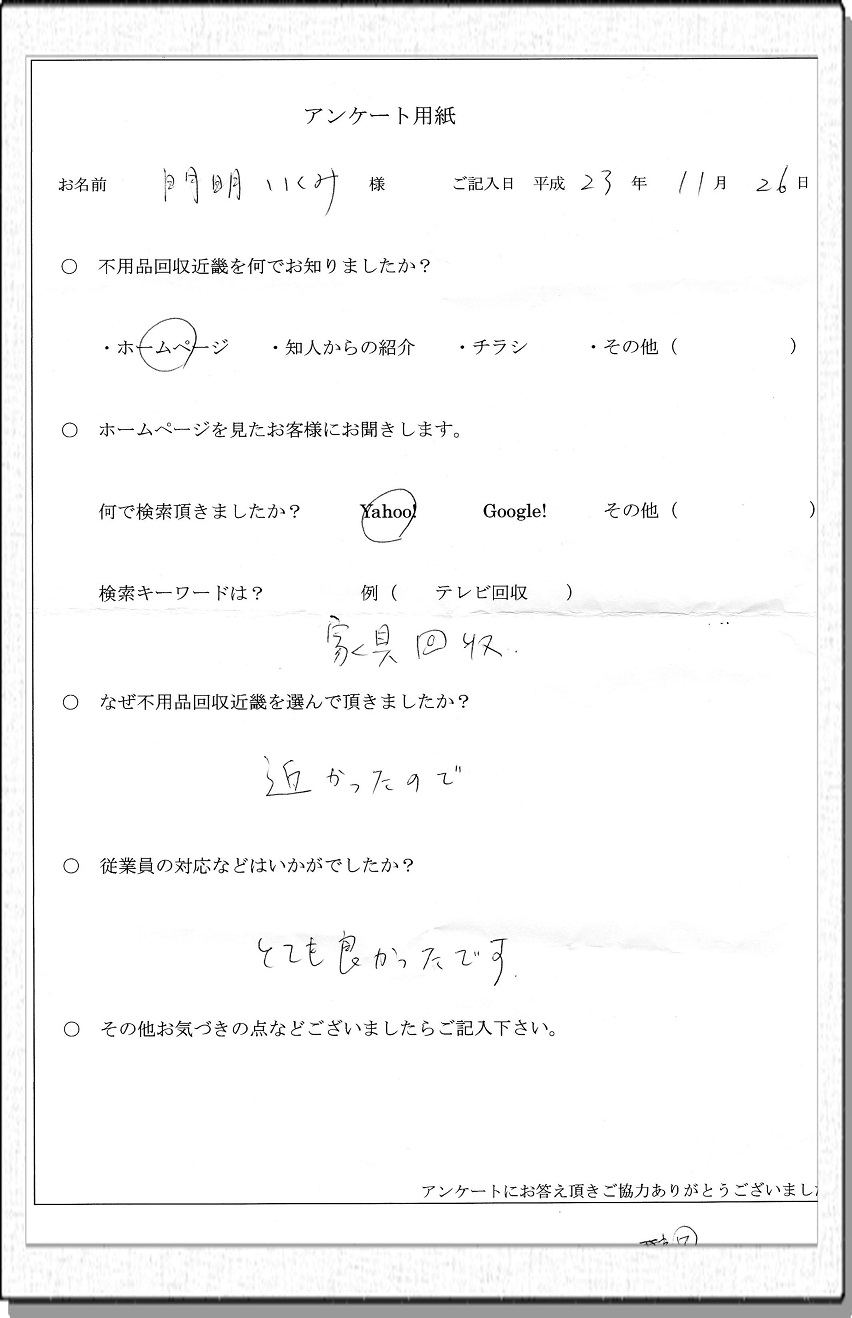 アンケート用紙
お名前 門明 いくみ 様 ご記入日 平成 23 年 11 月 26 日
○ 不用品回収近畿を何でお知りましたか？
・ホームページ ・知人からの紹介 ・チラシ ・その他（ ）
○ ホームページを見たお客様にお聞きします。
何で検索頂きましたか？ Yahoo! Google! その他（ ）
検索キーワードは？ 例（ テレビ回収 ）
家具回収.
○ なぜ不用品回収近畿を選んで頂きましたか？
近かったので
○ 従業員の対応などはいかがでしたか？
とても良かったです.
○ その他お気づきの点などございましたらご記入下さい。
アンケートにお答え頂きご協力ありがとうございまし